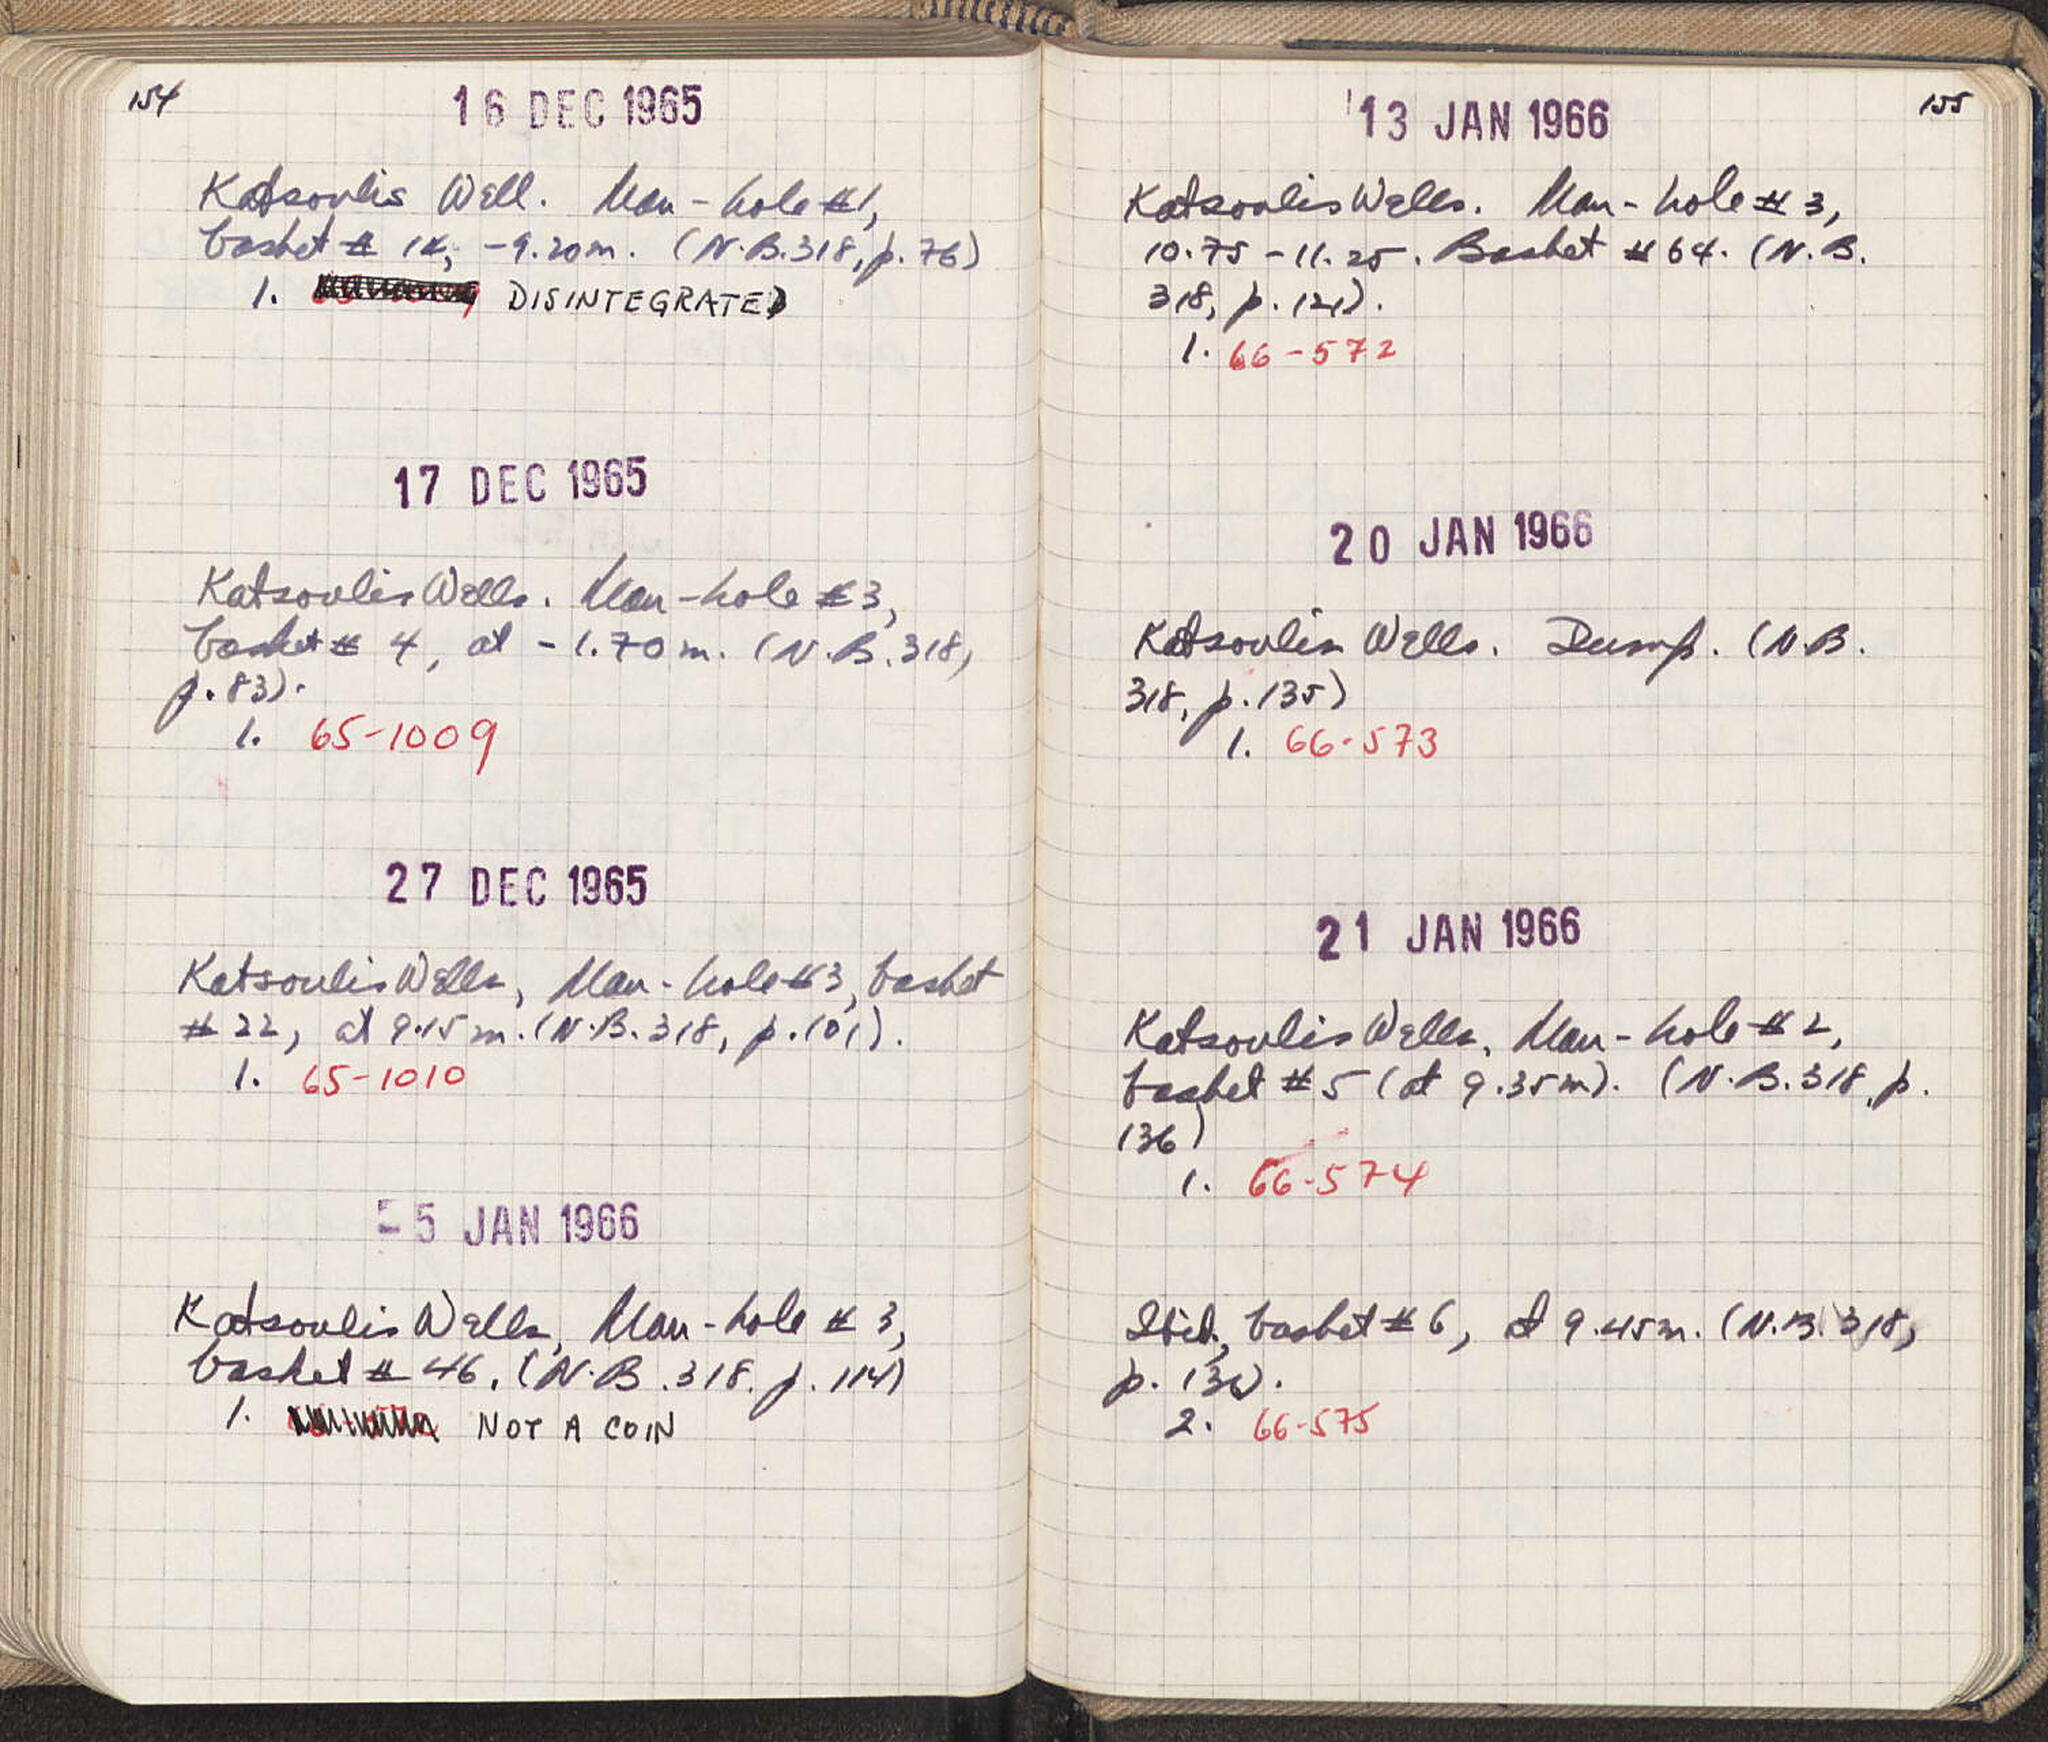 154
16 DEC 1965
Katsoulis Well. Man-hole #1,
basket # 14, -9.20m. (N.B.318, p. 76)
1. DISINTEGRATED
17 DEC 1965
Katsoulis Wells. Man-hole #3,
basket # 4, at -1.70m. (N.B.318,
p.83).
1. 65-1009
27 DEC 1965
Katsoulis Wells, Man-hole #3, basket
# 22, at 9.15m. (N.B.318, p.101).
1. 65-1010
-5 JAN 1966
Katsoulis Wells, Man-hole # 3,
basket # 46. (N.B.318. p.114)
1. NOT A COIN
155
13 JAN 1966
Katsoulis Wells. Man-hole # 3,
10.75-11.25. Basket #64. (N.B.
318, p.121).
1. 66-572
20 JAN 1966
Katsoulis Wells. Dump. (N.B.
318, p.135)
1. 66-573
21 JAN 1966
Katsoulis Wells, Man-hole #2,
basket #5 (at 9.35m). (N.B.318, p.
136)
1. 66-574
Ibid., basket #6, at 9.45m. (N.B. 318,
p.
2. 66-575